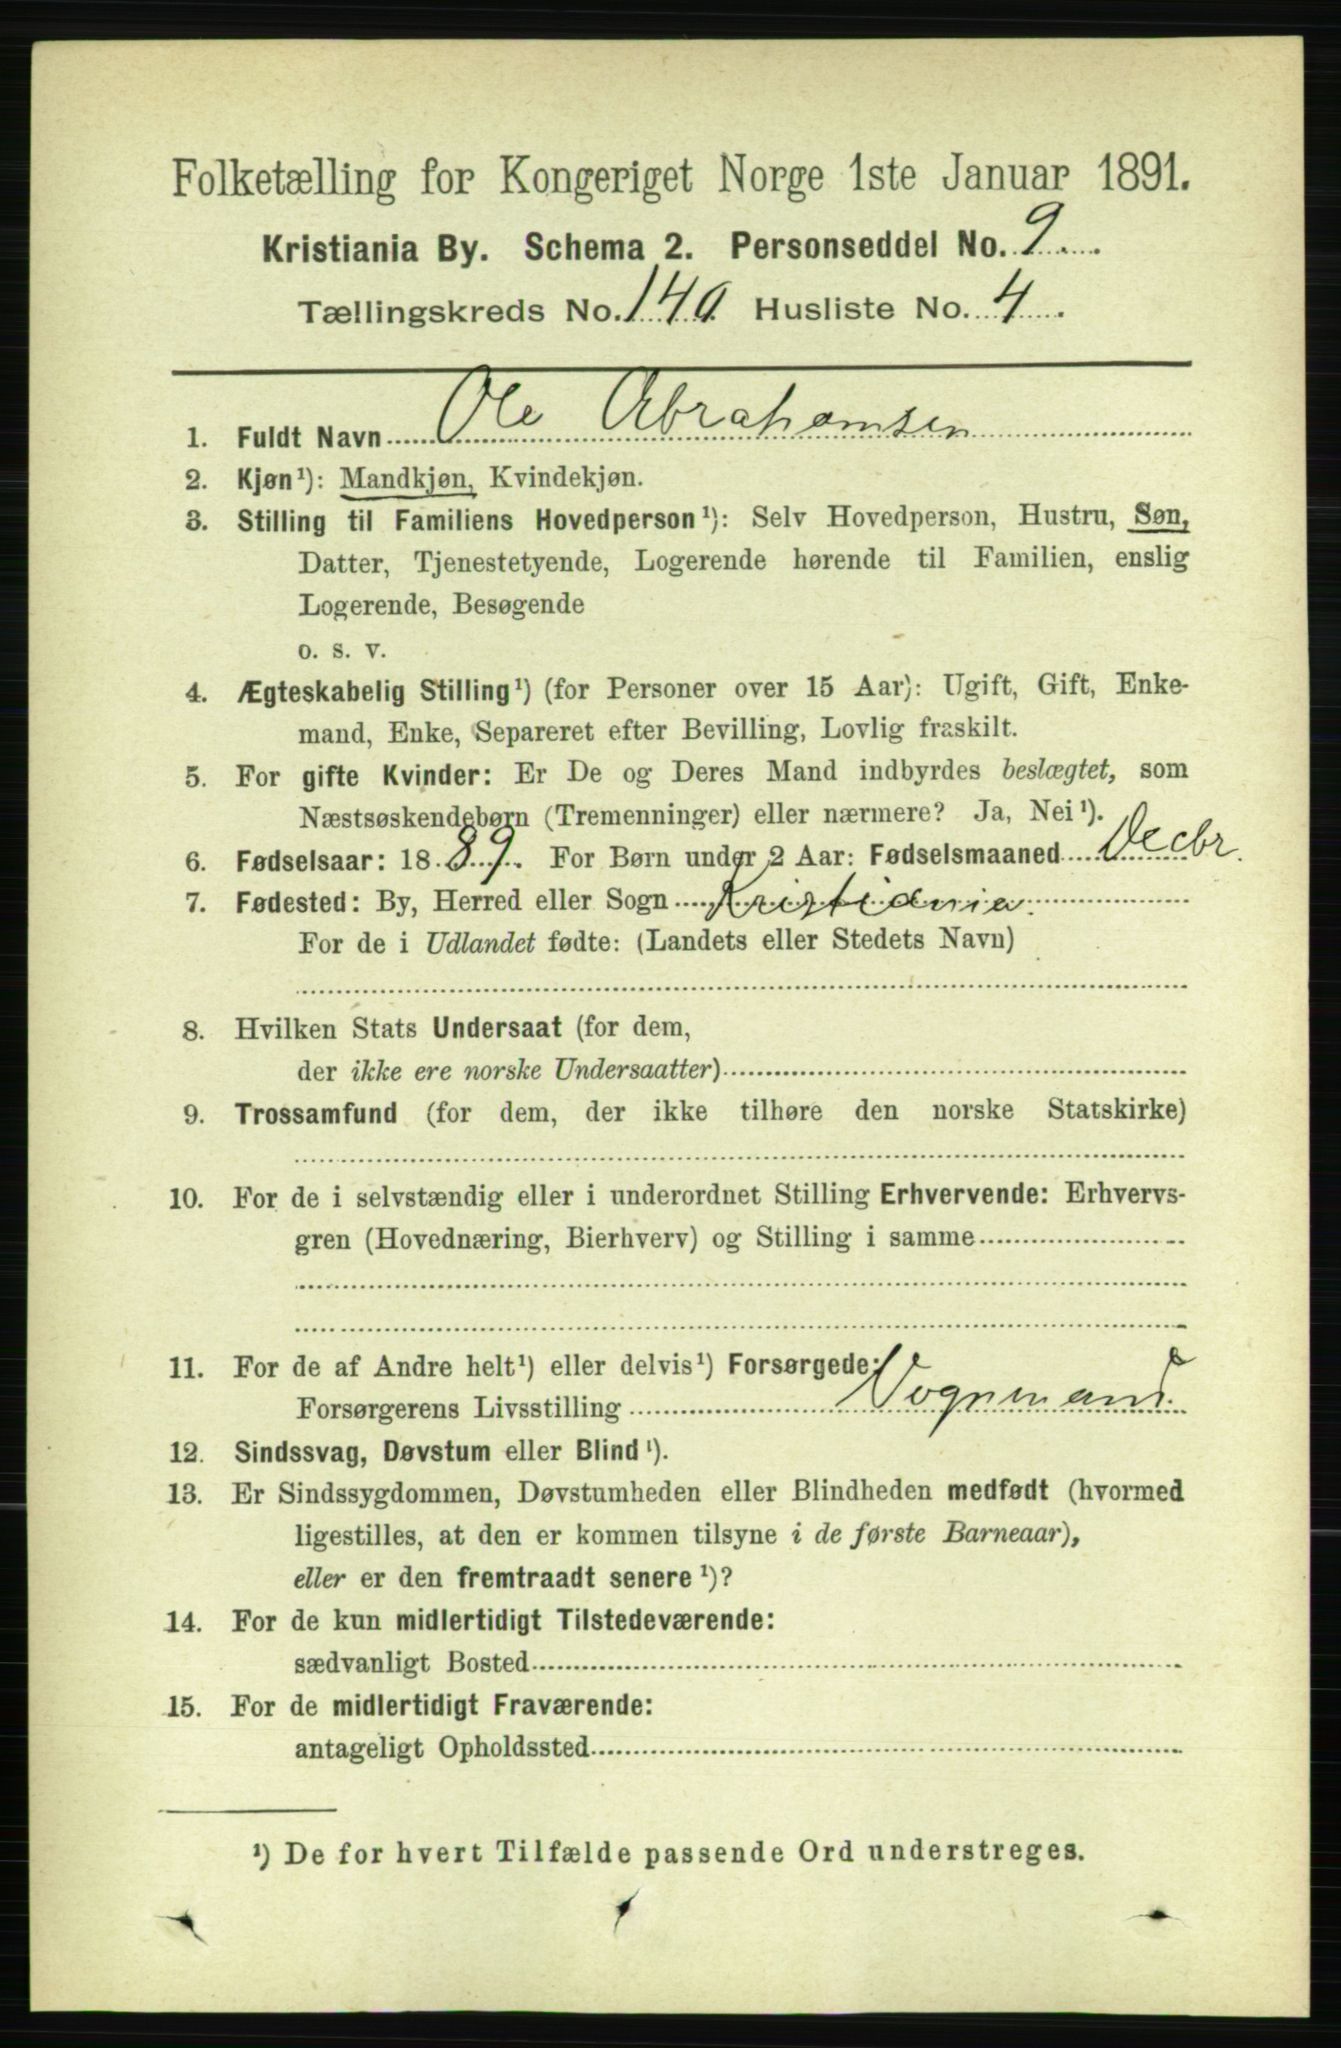 Folketælling for Kongeriget Norge 1ste Januar 1891.
Kristiania By. Schema 2. Personseddel No. 9
Tællingskreds No. 140 Husliste No. 4
1. Fuldt Navn Ole Abrahamsen
2. Kjøn¹): Mandkjøn, Kvindekjøn.
3. Stilling til Familiens Hovedperson¹): Selv Hovedperson, Hustru, Søn,
Datter, Tjenestetyende, Logerende hørende til Familien, enslig
Logerende, Besøgende
o. s. v.
4. Ægteskabelig Stilling¹) (for Personer over 15 Aar): Ugift, Gift, Enke-
mand, Enke, Separeret efter Bevilling, Lovlig fraskilt.
5. For gifte Kvinder: Er De og Deres Mand indbyrdes beslægtet, som
Næstsøskendebørn (Tremenninger) eller nærmere? Ja, Nei¹).
6. Fødselsaar: 1889. For Børn under 2 Aar: Fødselsmaaned Decbr.
7. Fødested: By, Herred eller Sogn Kristiania.
For de i Udlandet fødte: (Landets eller Stedets Navn)
8. Hvilken Stats Undersaat (for dem,
der ikke ere norske Undersaatter)
9. Trossamfund (for dem, der ikke tilhøre den norske Statskirke)
10. For de i selvstændig eller i underordnet Stilling Erhvervende: Erhvervs-
gren (Hovednæring, Bierhverv) og Stilling i samme
11. For de af Andre helt¹) eller delvis¹) Forsørgede:
Forsørgerens Livsstilling Vognmand
12. Sindssvag, Døvstum eller Blind¹).
13. Er Sindssygdommen, Døvstumheden eller Blindheden medfødt (hvormed
ligestilles, at den er kommen tilsyne i de første Barneaar),
eller er den fremtraadt senere¹)?
14. For de kun midlertidigt Tilstedeværende:
sædvanligt Bosted
15. For de midlertidigt Fraværende:
antageligt Opholdssted
¹) De for hvert Tilfælde passende Ord understreges.